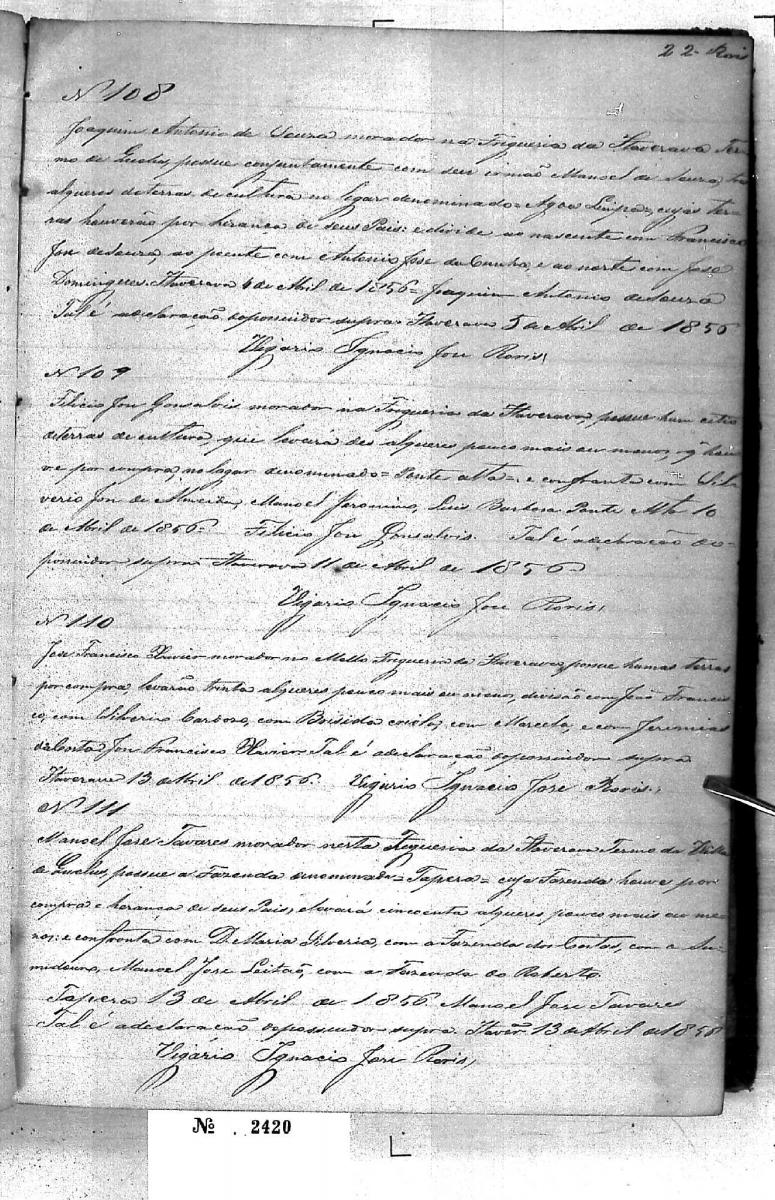 22 Roris
Nº 108
Joaquim Antonio de Souza morador na Frigueria da Itaverava Ter-
mo de Queluz, possue conjuntamente com seu irmão Manoel de Souza, 
alqueres de terras de cultura no lugar denominado = Agoa Limpa =, cujas ter-
ras houverão por herança de seus Pais: e divide ao nascente com Francisco
Jose de Souza, ao poente com Antonio Jose da Cunha, e ao norte com Jose
Domingues. Itaverava 4 de Abril de 1856 = Joaquim Antonio de Souza
Tal é a declaração do possuidor supra. Itaverava 5 de Abril de 1856
Vigario Ignacio Jose Roris,
Nº 109
Felicio Jose Gonsalvis morador na Fregueria da Itaverava, possue hum citio
de terras de cultura, que levará des alqueres pouco mais ou menos, q' hou-
ve por compra, no lugar denominado = Ponte alta =, e confronta com Sil-
verio Jose de Almeida, Manoel Jeronimo, Luis Barbosa Ponte Alta 10
de Abril de 1856 = Felicio Jose Gonsalvis. Tal é a declaração do
possuidor supra Itaverava 11 de Abril de 1856 =
Vigario Ignacio Jose Roris,
Nº 110
Jose Francisco Xavier morador no Mello Frigueria da Itaverava, possue humas terras
por compra levarão trinta alqueres pouco mais ou menos, divisão com João Francis
co, com Silverio Cardozo, com crioli, com Marcela, e com Jeremias
da Costa Jose Francisco Xavier Tal é a declaração do possuidor supra
Itaverava 13 de Abril de 1856. Vigario Ignacio Jose Roris,
Nº 111
Manoel Jose Tavares morador nesta Fregueria da Itaverava Termo da Villa
de Queluz, possue a Fazenda denominada = Tapera = cuja Fazenda houve por
compra e herança de seus Pais, e levará cincoenta alqueres pouco mais ou me-
nos: e confronta com D. Maria Silveria, com a Fazenda dos Costas, com o Su-
midouro, Manoel Jose Leitão, com a Fazenda do Roberto.
Tapera 13 de Abril de 1856 Manoel Jose Tavares
Tal é a declaração do possuidor supra. Itavera 13 de Abril de 1856
Vigario Ignacio Jose Roris,
Nº . 2420